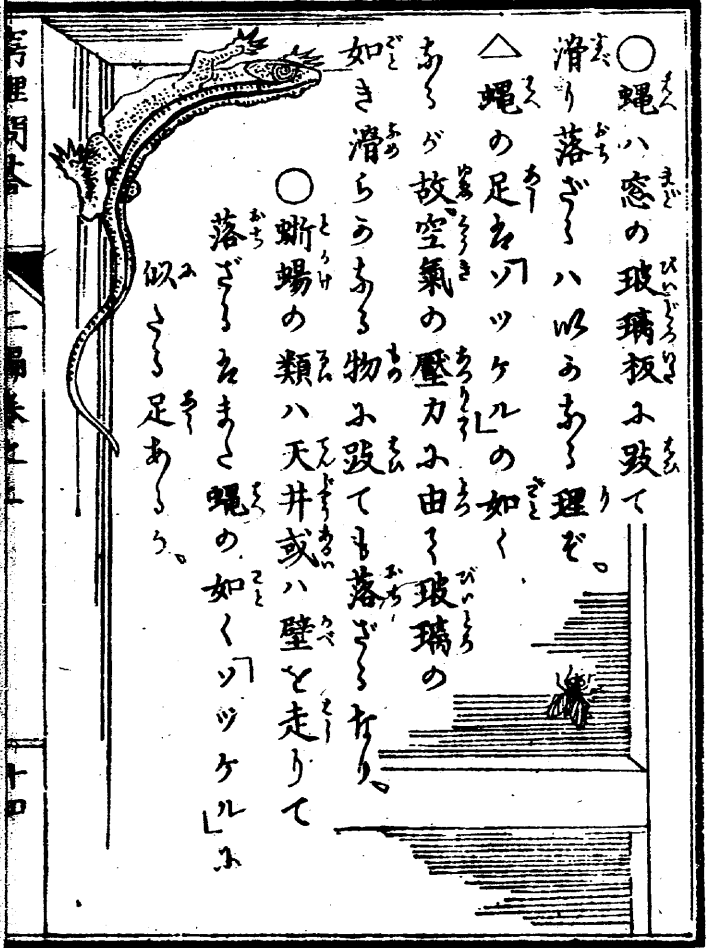 ○蝿ハ窓の玻璃板に跂て
滑り落ざるハ如何なる理ぞ。
△蝿の足は「ソツケル」の如く
なるが故、空氣の壓力に由て玻璃の
如き滑らかなる物に跂ても落ざるなり。
○蜥蜴の類ハ天井或ハ壁を走りて
落ざるはまた蝿の如く「ソツケル」に
似たる足あるか。
窮理問答
二編巻之二
十四